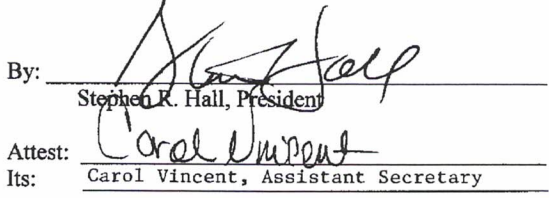 By: Steve Hall
Stephen R. Hall, President
Attest: Carol Vincent
Its: Carol Vincent, Assistant Secretary